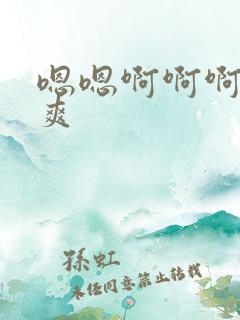 嗯嗯啊啊啊
爽
孫虹
未经同意禁止转载